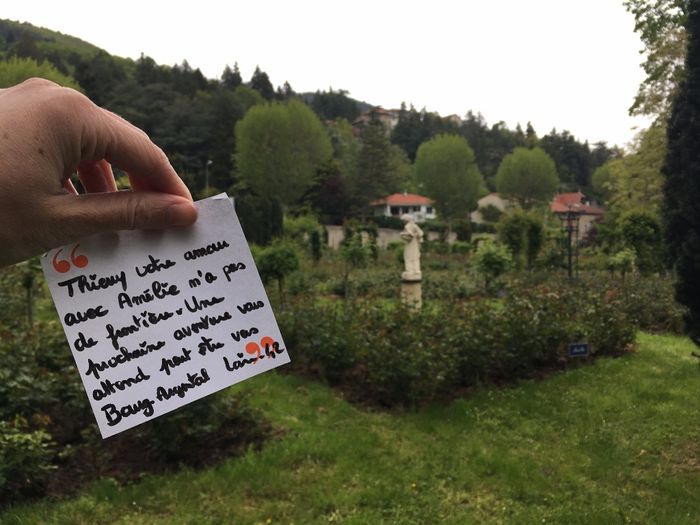 “
Thierry votre amour
avec Amélie n'a pas
de frontière. Une
prochaine aventure vous
attend peut être vas
Bourg Argental Loire 42
”